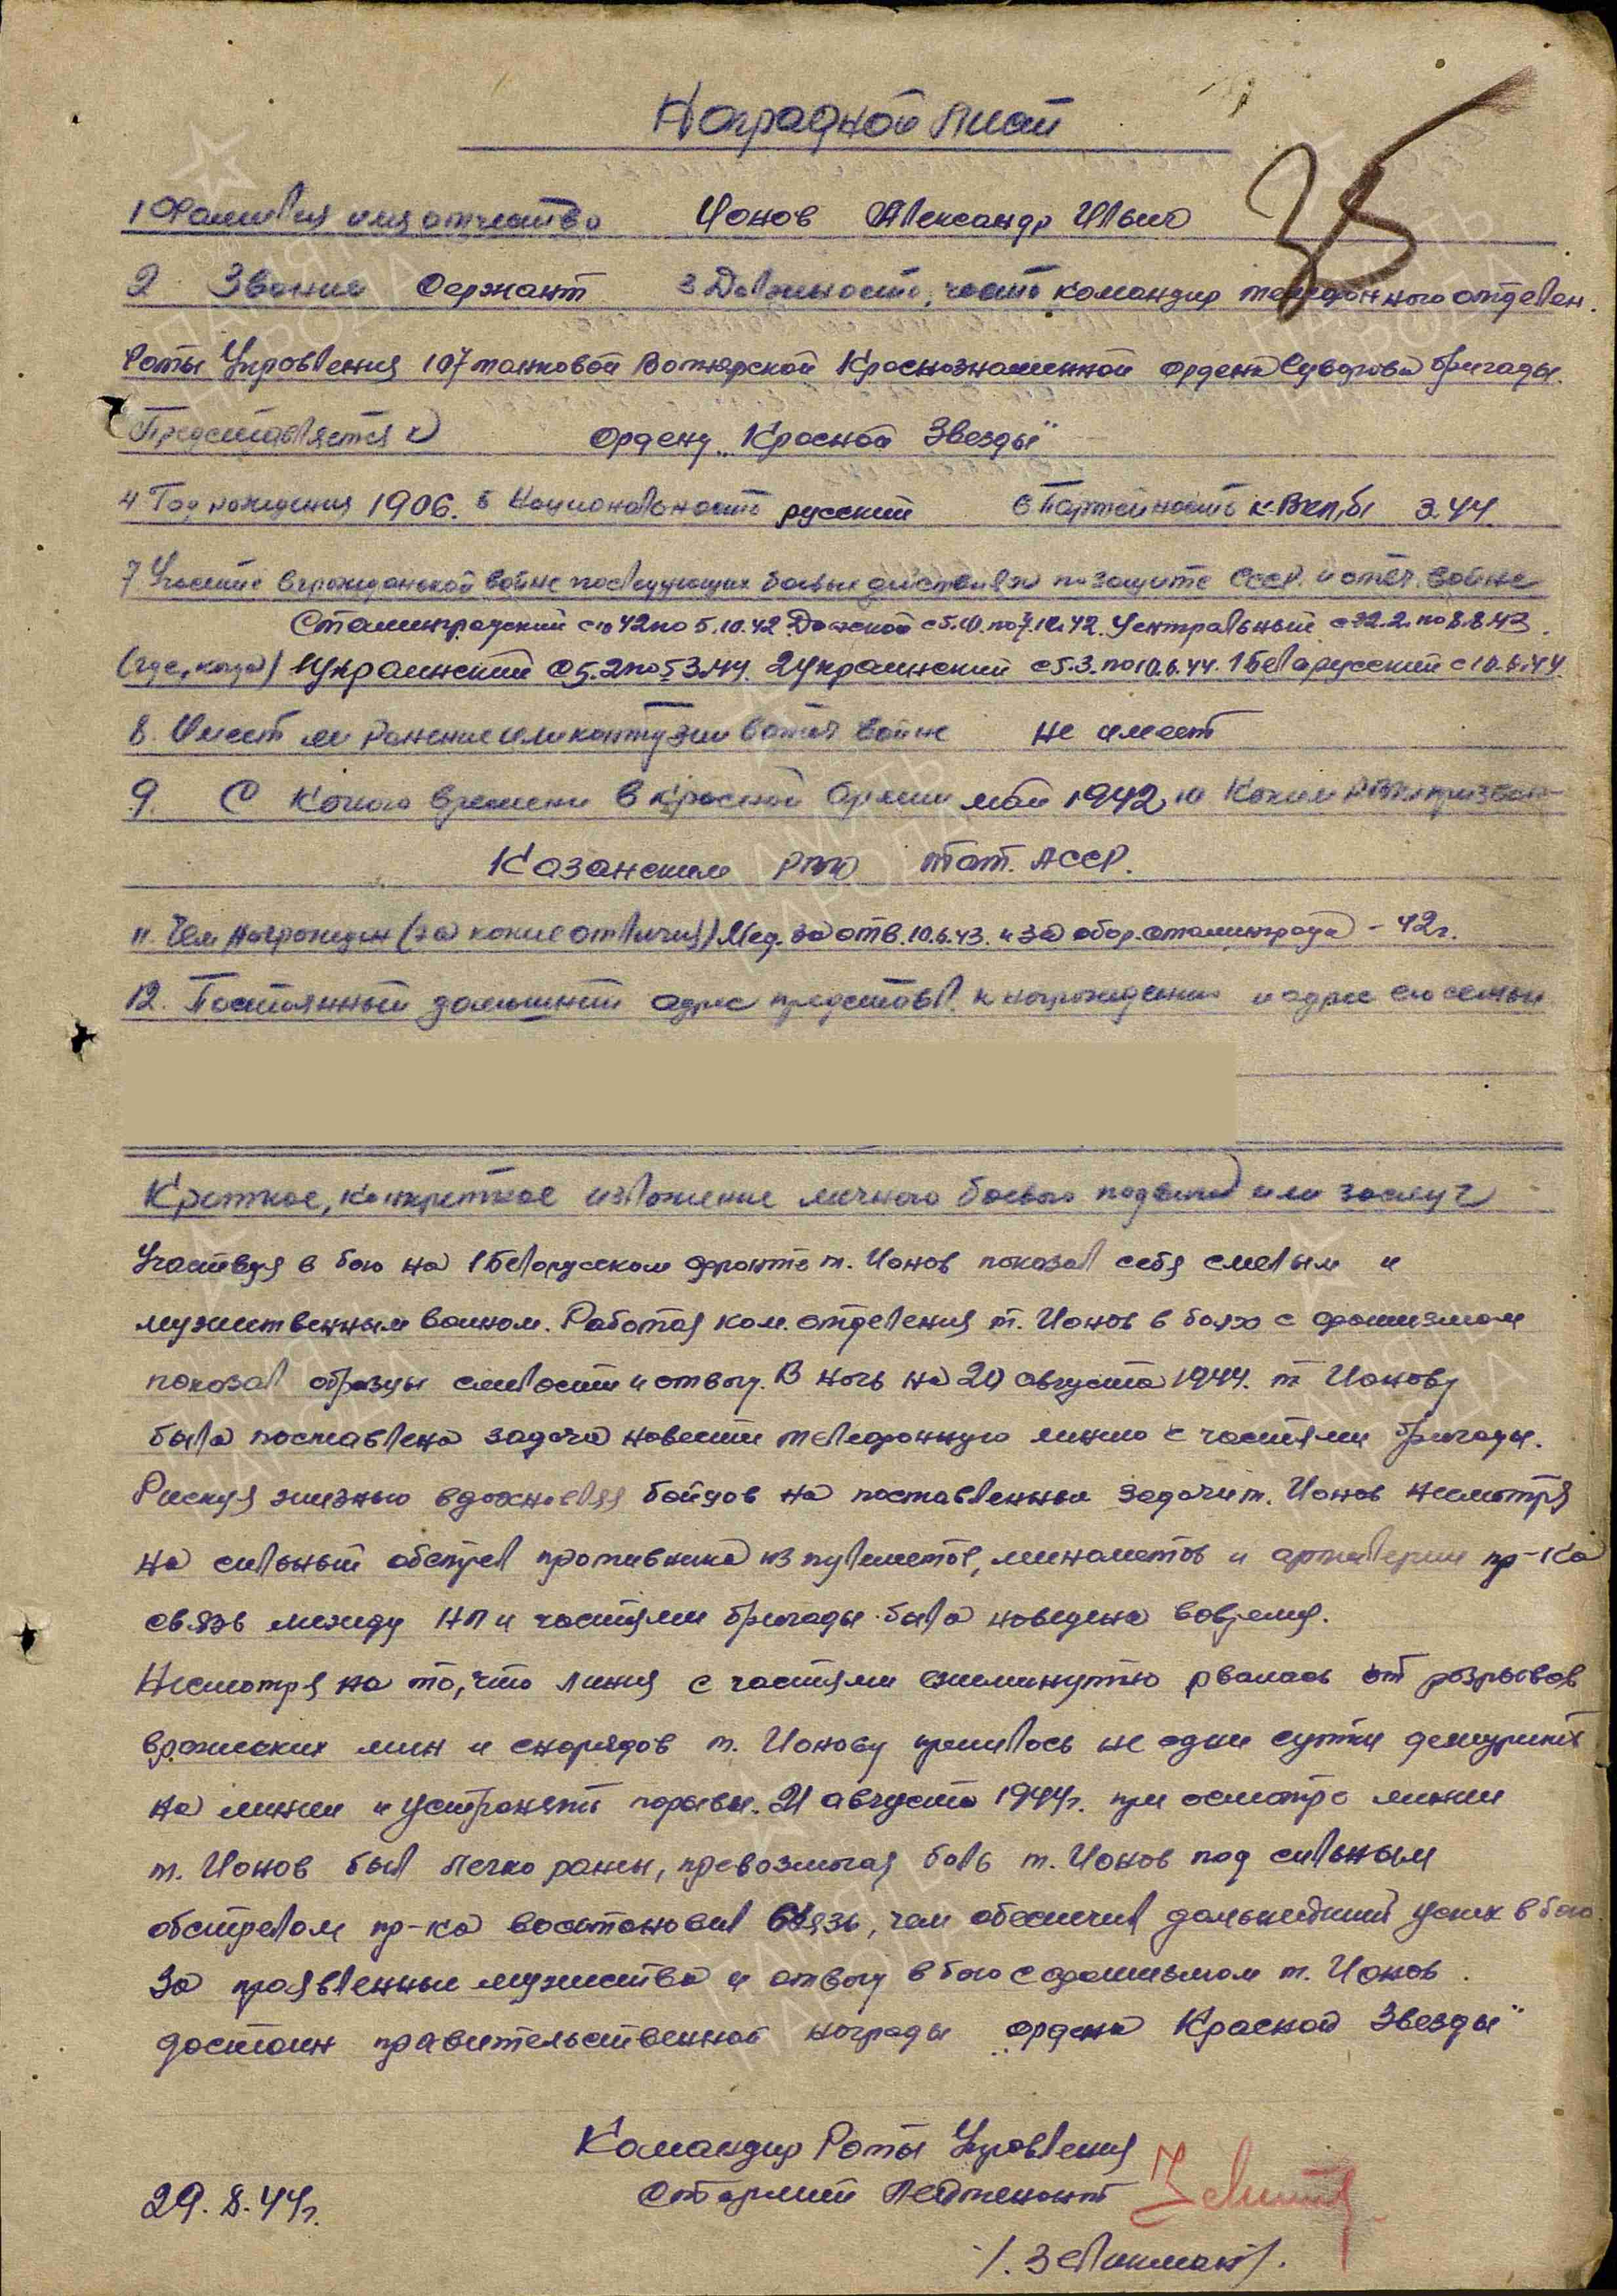 Наградной Лист
35
1 Фамилия имя отчество Ионов Александр Ильич
2 Звание Сержант 3 Должность, часть командир телефонного отделен.
Роты Управления 107 танковой Вотнярской Краснознаменной ордена Суворова бригады.
Представляется к Ордену „Красной Звезды"
4 Год рождения 1906. 5 Национальность русский 6 Партийность к.ВКП,б, 3.44
7 Участие в гражданской войне последующих боевых действиях по защите СССР. и отеч. войне
Сталинградский с 10 42 по 5.10.42. Донской с 5.10. по 7.12.42. Центральный с 22.2. по 8.8.43.
(где, когда) 1 Украинский с 5.2 по 5 3.44. 2 украинский с 5.3. по 10.6.44. 1 Беларусский с 10.6.44.
8. Имеет ли ранение или контузии в отеч войне не имеет
9. С какого времени в красной Армии май 1942 10 Каким РВК призван
Казанским РВК Тат. АССР.
11. Чем награжден (за какие отличия) Мед. за отв. 10.6.43. и за обор. сталинграда - 42г.
12. Постоянный домашний адрес представл. к награждению и адрес его семьи
Краткое, конкретное изложение личного боевого подвига или заслуг
Участвуя в бою на 1 Беларусском фронте т. Ионов показал себя смелым и
мужественным воином. Работая ком. отделения т. Ионов в боях с фашизмом
показал образцы смелости и отвагу. В ночь на 20 августа 1944. т Ионову
была поставлена задача навести телефонную линию с частями бригады.
Рискуя жизнью вдохновляя бойцов на поставленные задачи т. Ионов несмотря
на сильный обстрел противника из пулеметов, минометов и артилерии пр-ка
связь между НП и частями бригады была наведена вовремя.
Несмотря на то, что линия с частями ежеминутно рвалась от разрывов
вражеских мин и снарядов т. Ионову пришлось не одни сутки дежурить
на линии и устранять порывы. 21 августа 1944г. при осмотре линии
т. Ионов был легко ранен, превозмогая боль т. Ионов под сильным
обстрелом пр-ка восстановил связь, чем обеспечил дальнейший успех в бою
За проявленные мужество и отвагу в бою с фашизмом т. Ионов
достоин правительственной награды „ордена Красной Звезды"
Командир Роты Управления
Старший Лейтенант
29.8.44г.
ПАМЯТЬ НАРОДА